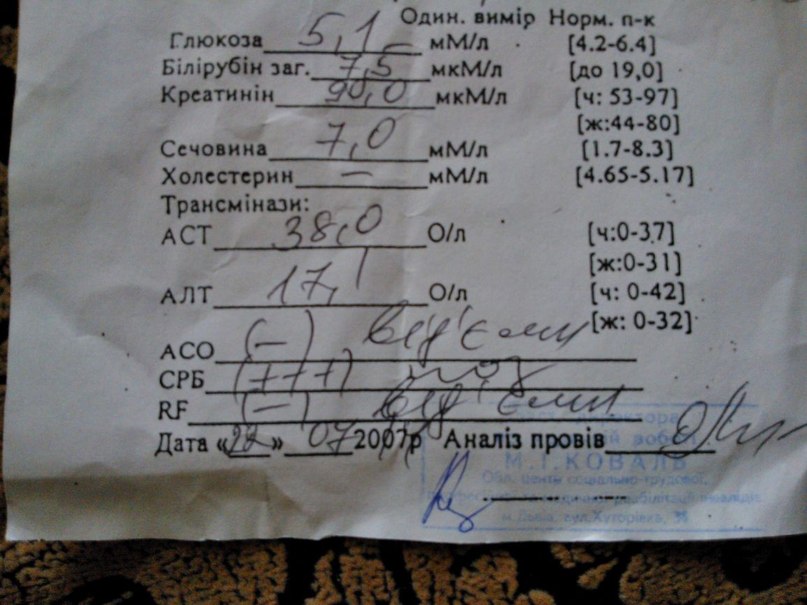 Один. вимір Норм. п-к
Глюкоза 5,1 мМ/л [4.2-6.4]
Білірубін заг. 7,5 мкМ/л [до 19,0]
Креатинін 90,0 мкМ/л [ч: 53-97]
[ж:44-80]
Сечовина 7,0 мМ/л [1.7-8.3]
Холестерин – мМ/л [4.65-5.17]
Трансмінази:
АСТ 38,0 О/л [ч:0-37]
[ж:0-31]
АЛТ 17,1 О/л [ч: 0-42]
[ж: 0-32]
АСО (–) від'ємн
СРБ (+++) поз
RF (–) від'ємн
Дата «22» 07 2007р Аналіз провів
М.І.КОВАЛЬ
Обл. центр соціально-трудової,
м.Львів, вул.Хуторівка,